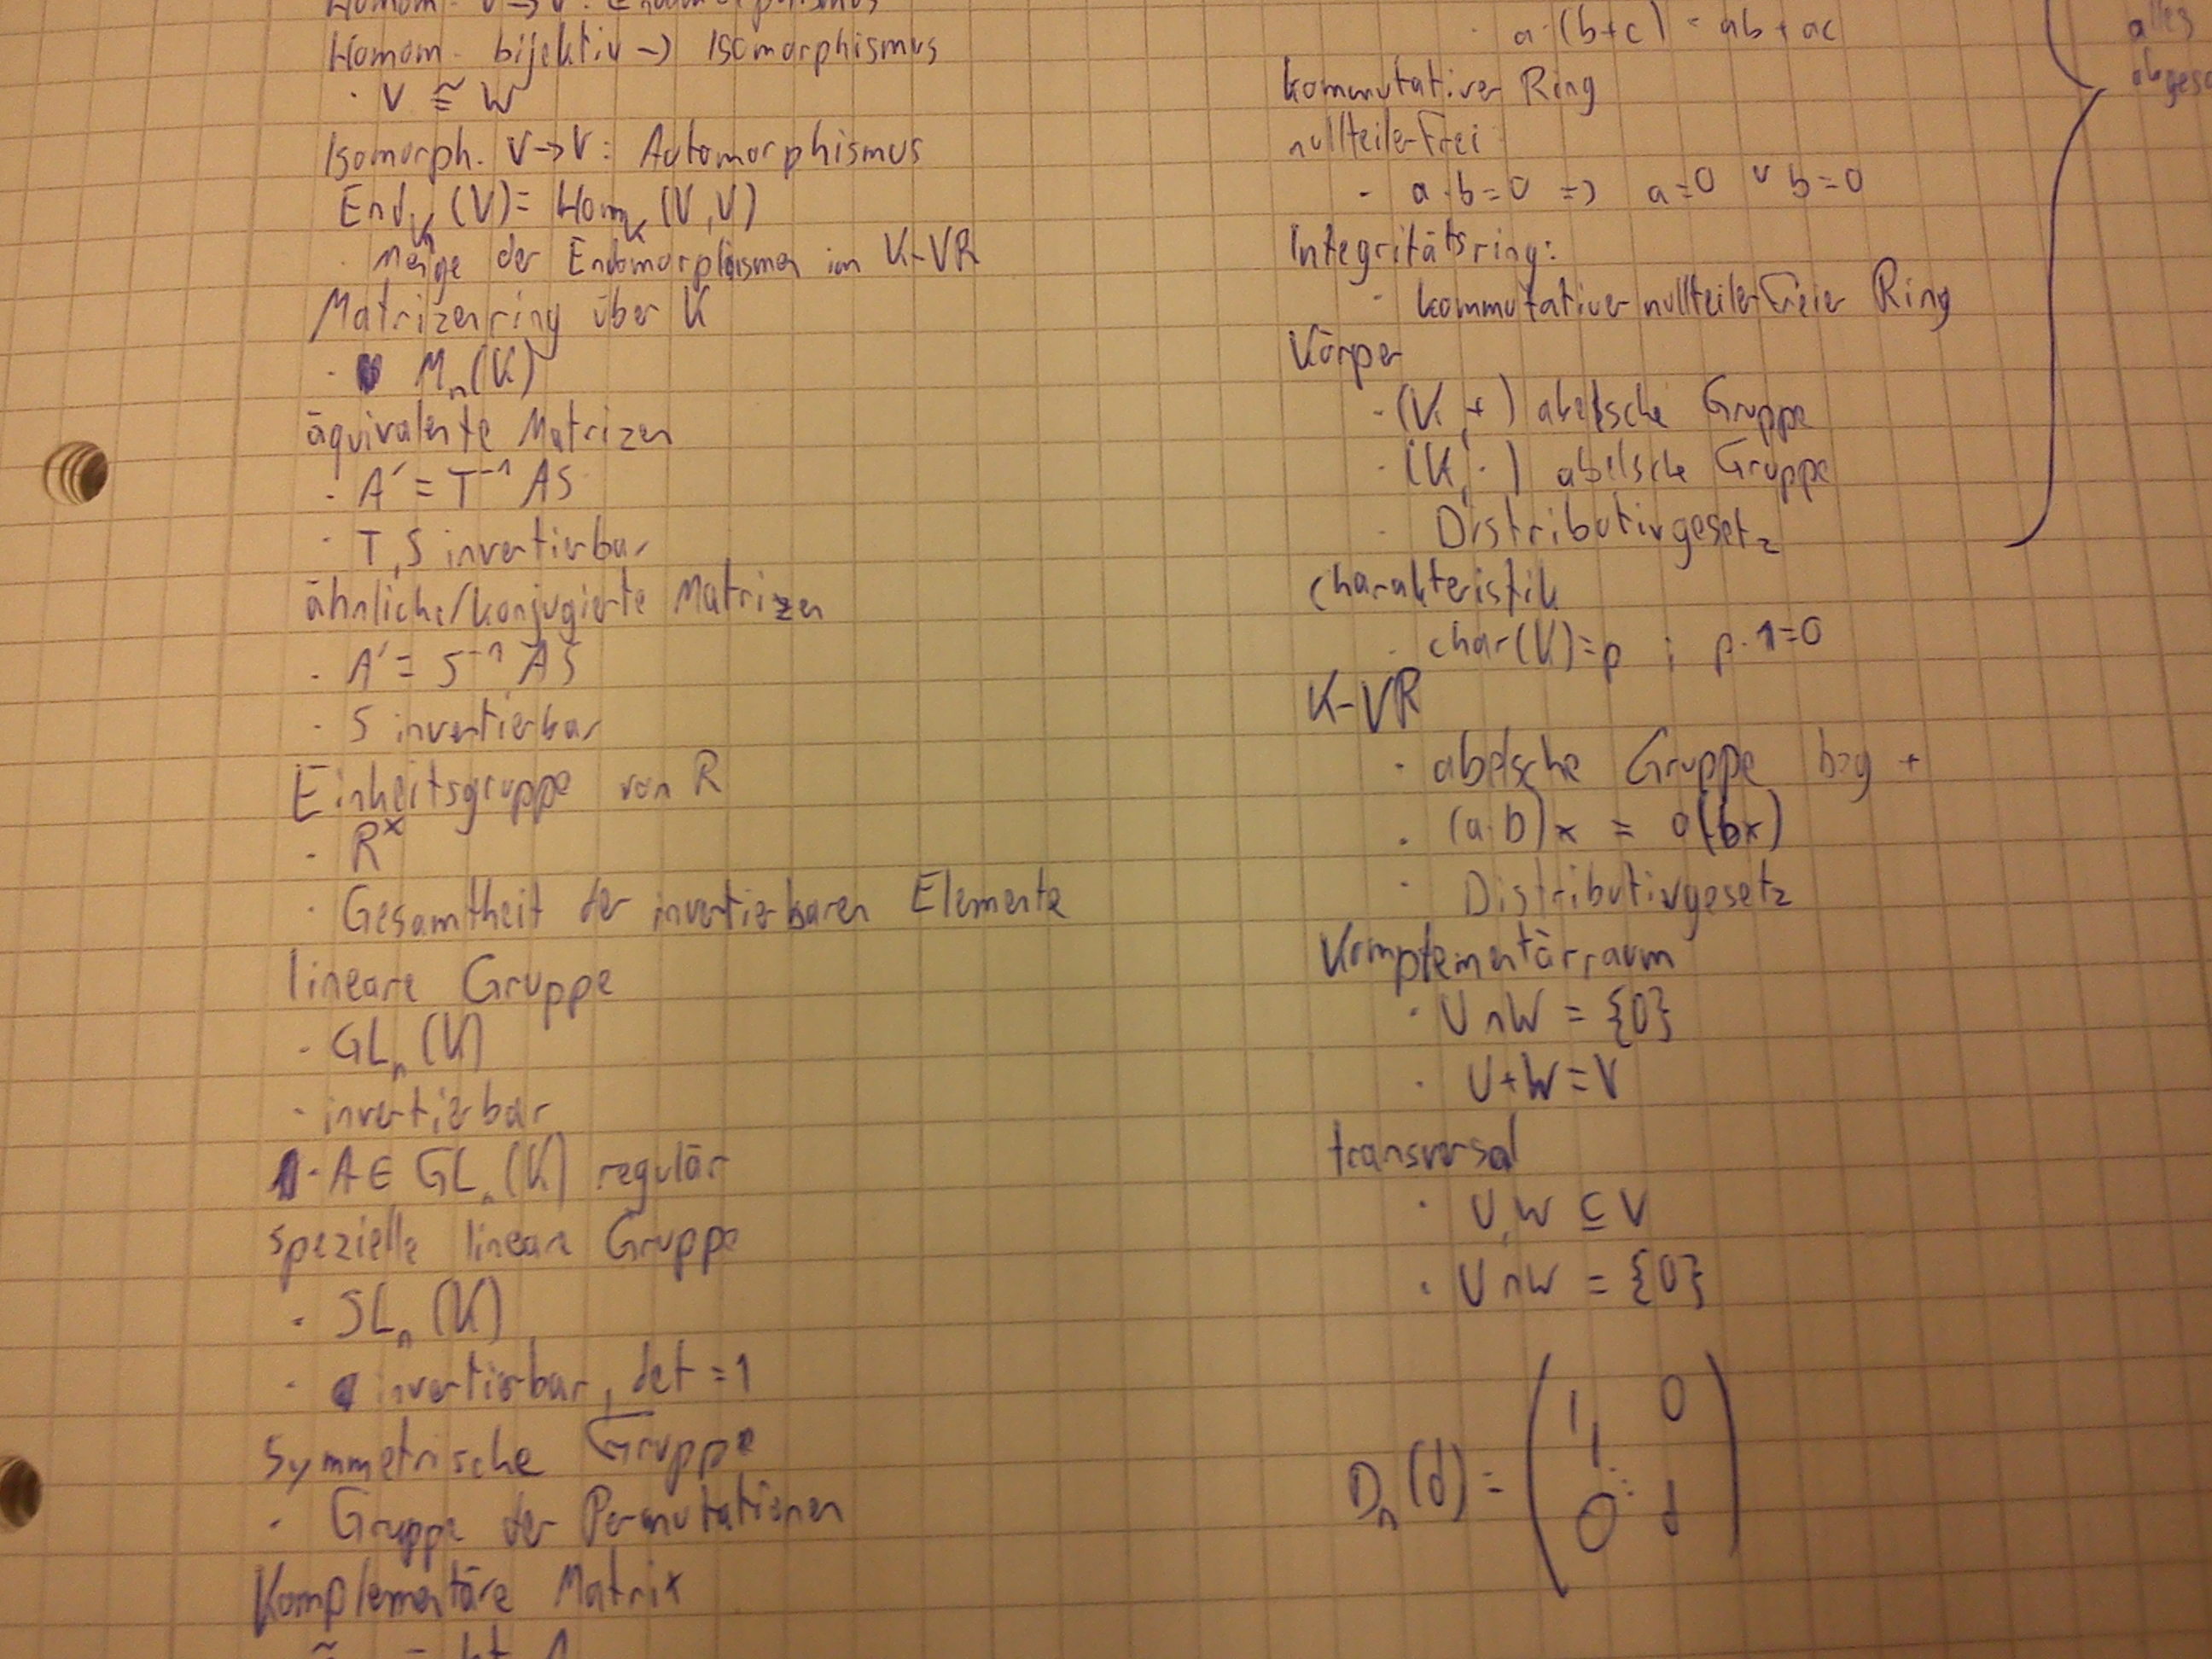 Homom. V → V: Endomorphismus
Homom. bijektiv → Isomorphismus
· V ≅ W
Isomorph. V→V: Automorphismus
End_K (V) = Hom_K (V,V)
· Menge der Endomorphismen im K-VR
Matrizenring über K
· M_n(K)
äquivalente Matrizen
· A' = T⁻¹ AS
· T, S invertierbar
ähnliche/konjugierte Matrizen
· A' = S⁻¹ AS
· S invertierbar
Einheitsgruppe von R
· R^x
· Gesamtheit der invertierbaren Elemente
lineare Gruppe
· GL_n (K)
· invertierbar
· A ∈ GL_n (K) regulär
spezielle lineare Gruppe
· SL_n (K)
· invertierbar, det = 1
Symmetrische Gruppe
· Gruppe der Permutationen
Komplementäre Matrix
· a·(b+c) = ab + ac
kommutativer Ring
nullteilerfrei
- a·b=0 => a=0 ∨ b=0
Integritätsring:
- kommutativer nullteilerfreier Ring
Körper
· (K, +) abelsche Gruppe
· (K, ·) abelsche Gruppe
· Distributivgesetz
Charakteristik
· char(K)=p ; p·1=0
K-VR
· abelsche Gruppe bzg +
· (a·b)x = a(bx)
· Distributivgesetz
Komplementärraum
· U∩W = {0}
· U+W=V
transversal
· U, W ⊆ V
· U∩W = {0}
D_n (d) = (1 0
1
⋱
0 d)
alles